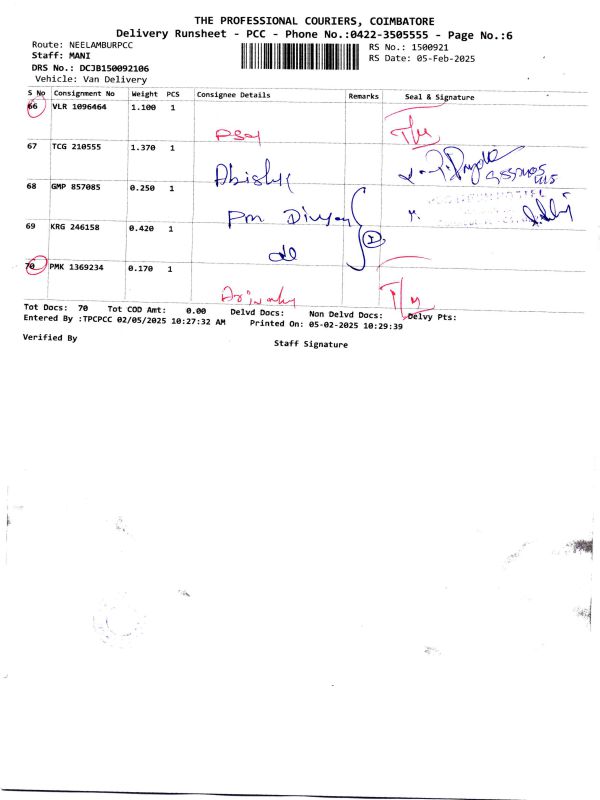 THE PROFESSIONAL COURIERS, COIMBATORE
Delivery Runsheet - PCC - Phone No.:0422-3505555 - Page No.:6
Route: NEELAMBURPCC
RS No.: 1500921
Staff: MANI
RS Date: 05-Feb-2025
DRS No.: DCJB150092106
Vehicle: Van Delivery
S No Consignment No Weight PCS Consignee Details Remarks Seal & Signature
66 VLR 1096464 1.100 1
67 TCG 210555 1.370 1
68 GMP 857085 0.250 1
69 KRG 246158 0.420 1
do
70 PMK 1369234 0.170 1
Tot Docs: 70 Tot COD Amt: 0.00 Delvd Docs: Non Delvd Docs: Delvy Pts:
Entered By :TPCPCC 02/05/2025 10:27:32 AM Printed On: 05-02-2025 10:29:39
Verified By
Staff Signature